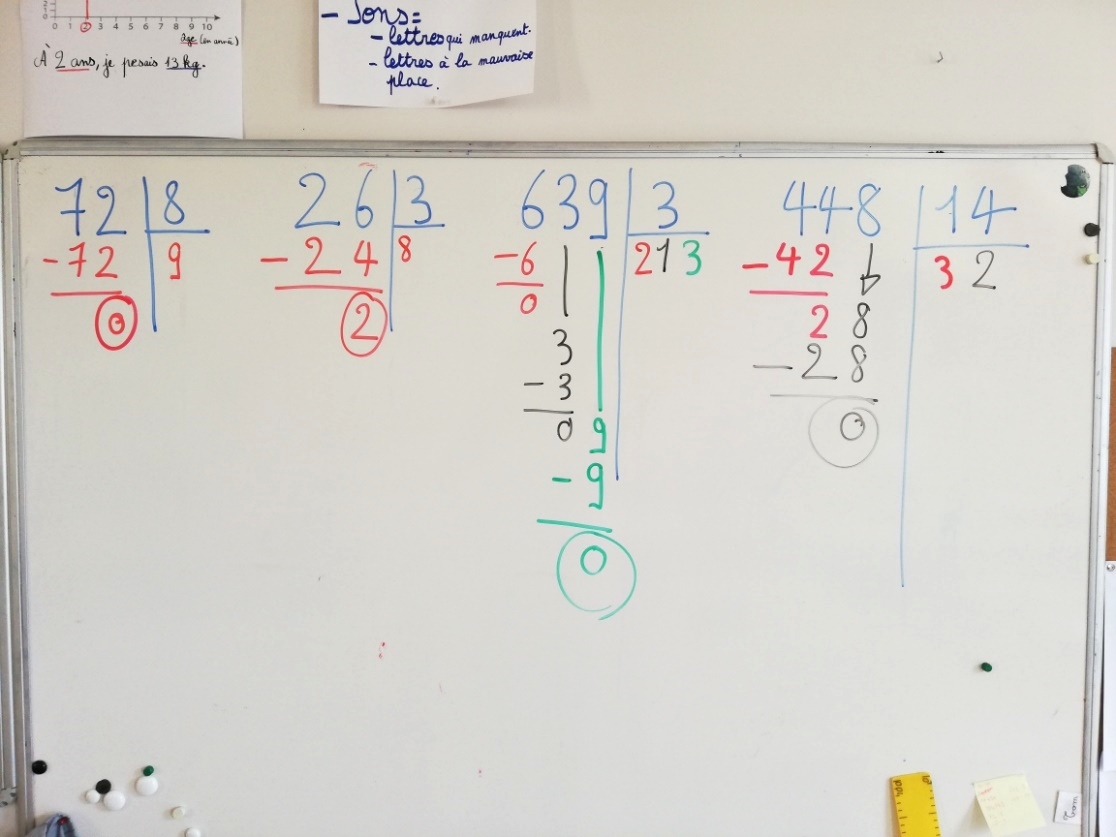 0 1 2 3 4 5 6 7 8 9 10
âge (en année)
À 2 ans, je pesais 13 kg.
- Sons =
- lettres qui manquent.
- lettres à la mauvaise
place.
72 8
-72 9
0
26 3
-24 8
2
639 3
-6 213
0
3
-3
0 9
-9
0
448 14
-42 32
28
-28
0